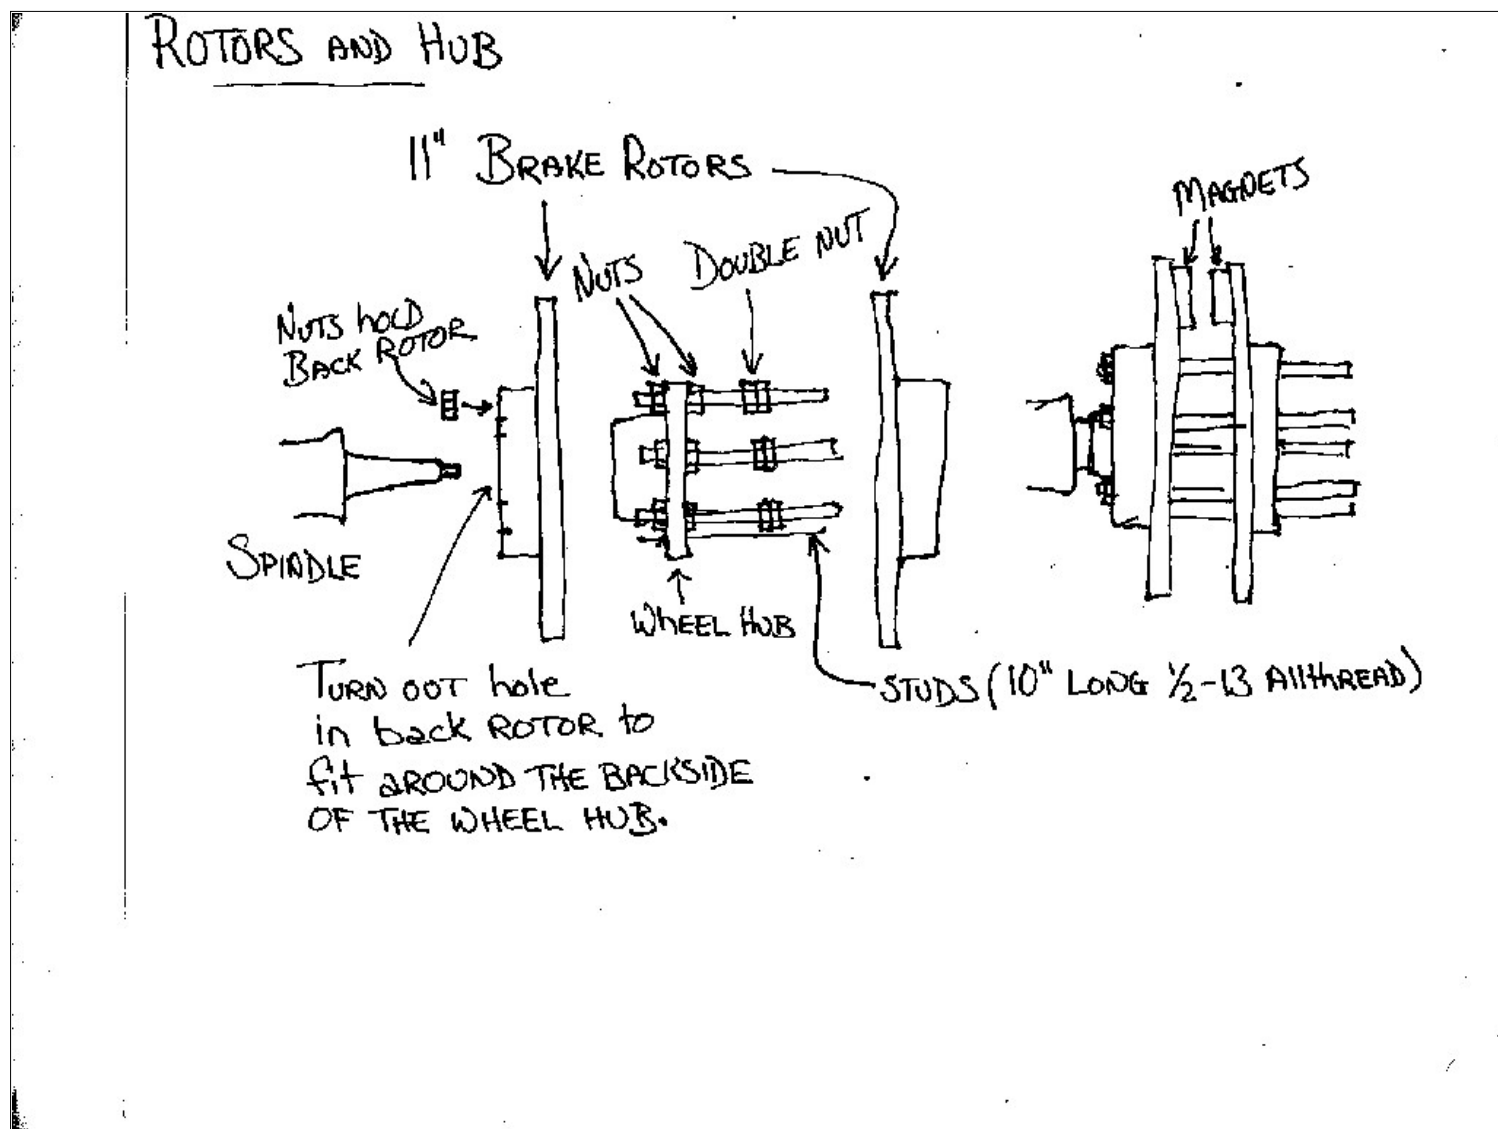 ROTORS AND HUB
11" BRAKE ROTORS
MAGNETS
NUTS
DOUBLE NUT
NUTS hOLD
BACK ROTOR
SPINDLE
WhEEL HUB
STUDS (10" LONG 1/2-13 AllthREAD)
TURN OUT hole
in back ROTOR to
fit AROUND THE BACKSIDE
OF THE WHEEL HUB.